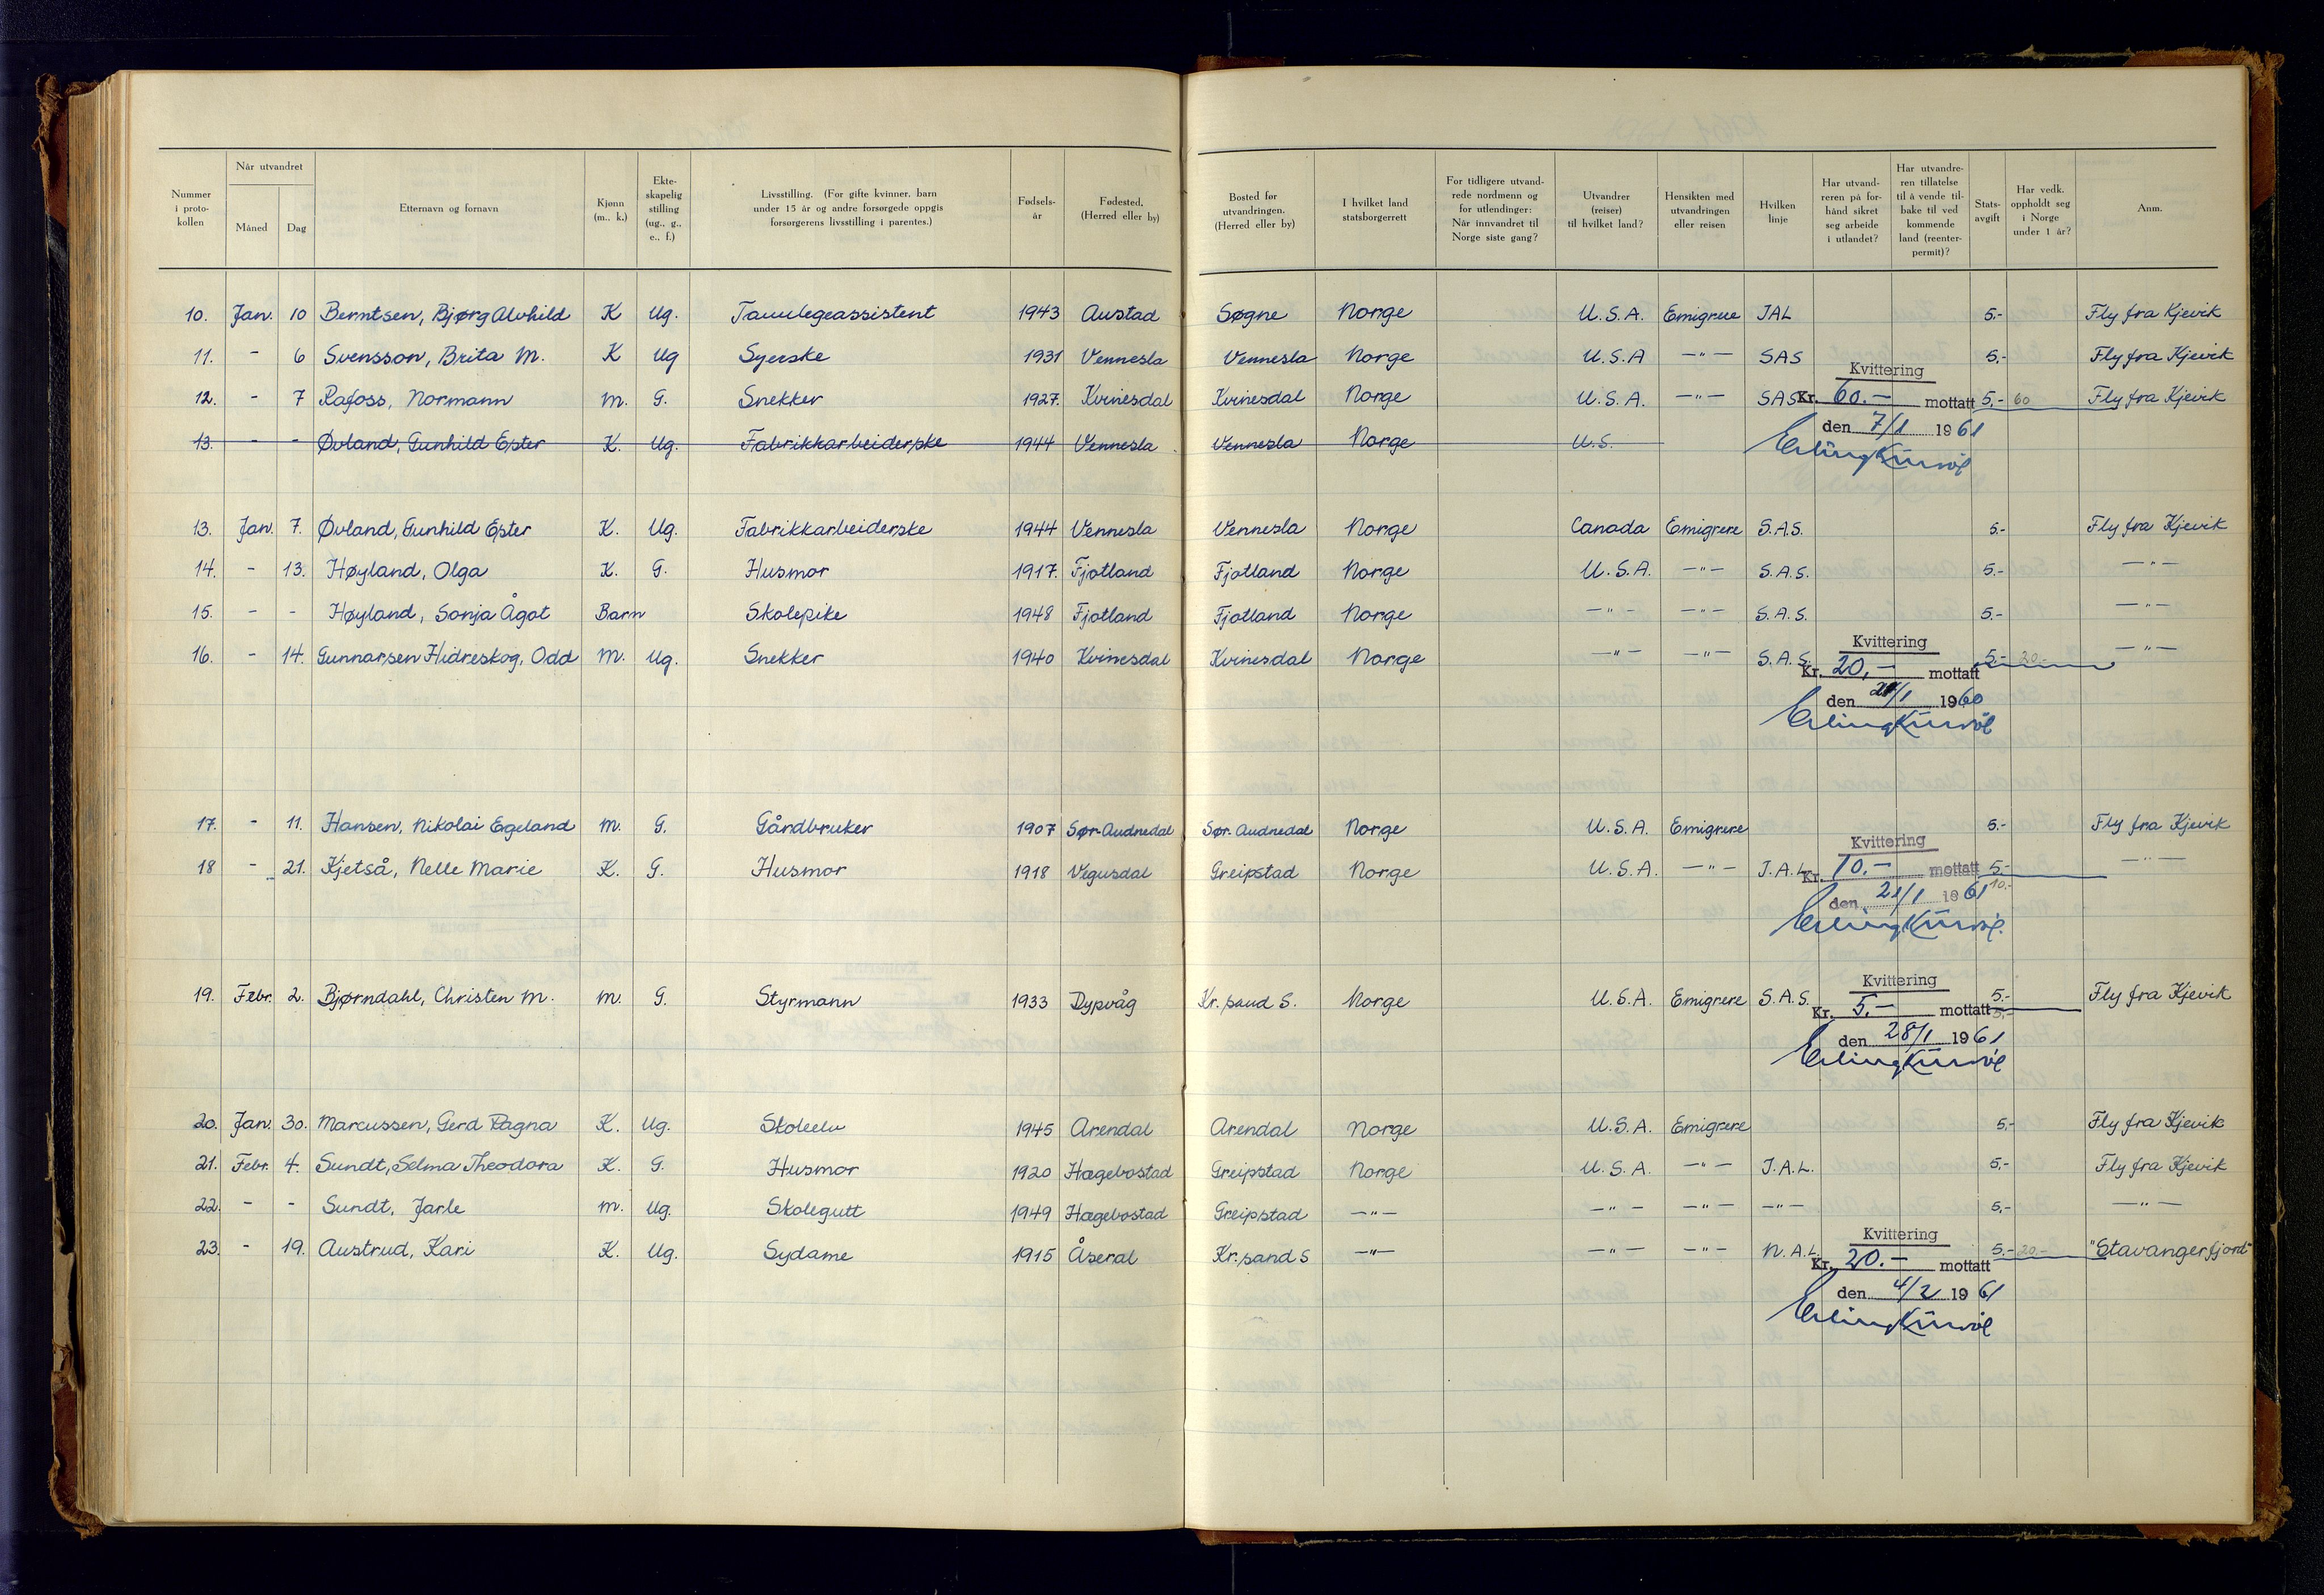 Nummer i proto- kollen | Når utvandret: Måned | Dag | Etternavn og fornavn | Kjønn (m., k.) | Ekte- skapelig stilling (ug., g., e., f.) | Livsstilling. (For gifte kvinner, barn under 15 år og andre forsørgede oppgis forsørgerens livsstilling i parentes.) | Fødsels- år | Fødested. (Herred eller by) | Bosted før utvandringen. (Herred eller by) | I hvilket land statsborgerrett | For tidligere utvand- rede nordmenn og for utlendinger: Når innvandret til Norge siste gang? | Utvandrer (reiser) til hvilket land? | Hensikten med utvandringen eller reisen | Hvilken linje | Har utvand- reren på for- hånd sikret seg arbeide i utlandet? | Har utvandre- ren tillatelse til å vende til- bake til ved kommende land (reenter- permit)? | Stats- avgift | Har vedk. oppholdt seg i Norge under 1 år? | Anm.
10. Jan. 10 Berntsen, Bjørg Alvhild K Ug. Tannlegeassistent 1943 Austad Søgne Norge U.S.A. Emigrere IAL 5.- Fly fra Kjevik
11. - 6 Svensson, Brita M. K Ug Syerske 1931 Vennesla Vennesla Norge U.S.A -"- SAS 5.- Fly fra Kjevik
Kvittering
12. - 7 Rafoss, Normann M. G. Snekker 1927. Kvinesdal Kvinesdal Norge U.S.A. -"- SAS Kr. 60.- mottatt 5.- 60 Fly fra Kjevik
den 7/1 1961
13. - - Øvland, Gunhild Ester K. Ug. Fabrikkarbeiderske 1944 Vennesla Vennesla Norge U.S.
13. Jan. 7. Øvland, Gunhild Ester K. Ug. Fabrikkarbeiderske 1944 Vennesla Vennesla Norge Canada Emigrere S.A.S. 5.- Fly fra Kjevik
14. - 13. Høyland, Olga K. G. Husmor 1917. Fjotland Fjotland Norge U.S.A. -"- S.A.S. 5.- -"-
15. - - Høyland, Sonja Ågot Barn Skolepike 1948 Fjotland Fjotland Norge -"- -"- S.A.S. 5.- -"-
Kvittering
16. - 14. Gunnarsen Hidreskog, Odd M. Ug. Snekker 1940 Kvinesdal Kvinesdal Norge -"- -"- S.A.S. Kr. 20.- mottatt 5.- 20.- -"-
den /1 1960
17. - 11. Hansen, Nikolai Egeland M. G. Gårdbruker 1907 Sør-Audnedal Sør-Audnedal Norge U.S.A. Emigrere 5.- Fly fra Kjevik
Kvittering
18 - 21. Kjetså, Nelle Marie K. G. Husmor 1918 Vegusdal Greipstad Norge U.S.A. -"- I.A.L. Kr. 10.- mottatt 5.- 10.- -"-
den 21/1 1961
Kvittering
19. Febr. 2. Bjørndahl, Christen M. M. G. Styrmann 1933 Dypvåg Kr.sand S. Norge U.S.A. Emigrere S.A.S. Kr. 5.- mottatt 5.- 5.- Fly fra Kjevik
den 28/1 1961
20. Jan. 30. Marcussen, Gerd Ragna K. Ug. Skoleelv 1945 Arendal Arendal Norge U.S.A. Emigrere 5.- Fly fra Kjevik
21. Febr. 4. Sundt, Selma Theodora K. G. Husmor 1920 Hægebostad Greipstad Norge U.S.A. -"- I.A.L. 5.- Fly fra Kjevik
22. - - Sundt, Jarle M. Ug. Skolegutt 1949 Hægebostad Greipstad -"- -"- -"- -"- 5.- -"-
Kvittering
23. - 19. Austrud, Kari K. Ug. Sydame 1915 Åseral Kr.sand S -"- -"- -"- N.A.L. Kr. 20.- mottatt 5.- 20.- "Stavangerfjord"
den 4/2 1961